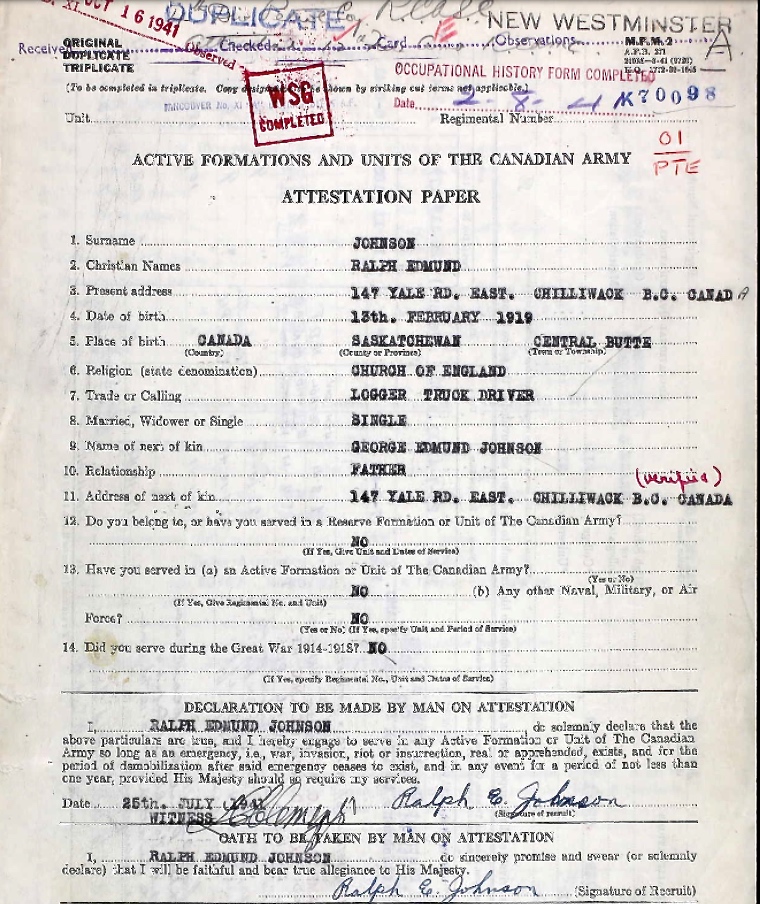 OCT 16 1941 DUPLICATE NEW WESTMINSTER
Received Observed Checked Card E Observations M.F.M. 2 A
ORIGINAL
DUPLICATE
TRIPLICATE
OCCUPATIONAL HISTORY FORM COMPLETED
(To be completed in triplicate. Copy shown by striking out terms not applicable.)
WSG
COMPLETED
Date 2-8-41 K70098
Unit Regimental Number
01
PTE
ACTIVE FORMATIONS AND UNITS OF THE CANADIAN ARMY
ATTESTATION PAPER
1. Surname JOHNSON
2. Christian Names RALPH EDMUND
3. Present address 147 YALE RD. EAST. CHILLIWACK B.C. CANADA
4. Date of birth 13th. FEBRUARY 1919
5. Place of birth CANADA SASKATCHEWAN CENTRAL BUTTE
(Country) (County or Province) (Town or Township)
6. Religion (state denomination) CHURCH OF ENGLAND
7. Trade or Calling LOGGER TRUCK DRIVER
8. Married, Widower or Single SINGLE
9. Name of next of kin GEORGE EDMUND JOHNSON
10. Relationship FATHER (verified)
11. Address of next of kin 147 YALE RD. EAST. CHILLIWACK B.C. CANADA
12. Do you belong to, or have you served in a Reserve Formation or Unit of The Canadian Army?
NO
(If Yes, Give Unit and Dates of Service)
13. Have you served in (a) an Active Formation or Unit of The Canadian Army?
(Yes or No)
NO (b) Any other Naval, Military, or Air
(If Yes, Give Regimental No. and Unit)
Force? NO
(Yes or No) (If Yes, specify Unit and Period of Service)
14. Did you serve during the Great War 1914-1918? NO
(If Yes, specify Regimental No., Unit and Dates of Service)
DECLARATION TO BE MADE BY MAN ON ATTESTATION
I, RALPH EDMUND JOHNSON do solemnly declare that the
above particulars are true, and I hereby engage to serve in any Active Formation or Unit of The Canadian
Army so long as an emergency, i.e., war, invasion, riot or insurrection, real or apprehended, exists, and for the
period of demobilization after said emergency ceases to exist, and in any event for a period of not less than
one year, provided His Majesty should so require my services.
Date 25th. JULY 1941 Ralph E. Johnson
WITNESS (Signature of recruit)
OATH TO BE TAKEN BY MAN ON ATTESTATION
I, RALPH EDMUND JOHNSON do sincerely promise and swear (or solemnly
declare) that I will be faithful and bear true allegiance to His Majesty.
Ralph E. Johnson (Signature of Recruit)